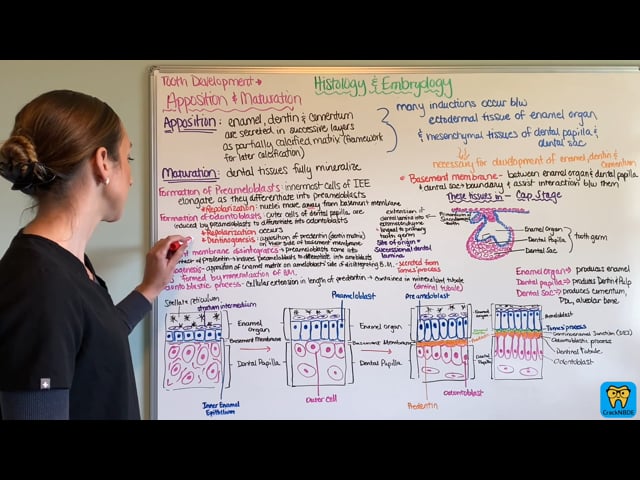 Tooth Development →
Histology & Embryology
Apposition & Maturation
Apposition: enamel, dentin & cementum
are secreted in successive layers
as partially calcified matrix (framework
for later calcification)
many inductions occur b/w
ectodermal tissue of enamel organ
& mesenchymal tissues of dental papilla &
dental sac
necessary for development of enamel, dentin &
cementum
Maturation: dental tissues fully mineralize
* Basement membrane - between enamel organ & dental papilla
& dental sac → boundary & assist interaction b/w them
These tissues in - Cap Stage
Formation of Preameloblasts: innermost cells of IEE
elongate as they differentiate into preameloblasts
* Repolarization: nuclei move away from basement membrane
Formation of odontoblasts: outer cells of dental papilla are
induced by preameloblasts to differentiate into odontoblasts
* Repolarization occurs
* Dentinogenesis: apposition of predentin (dentin matrix)
on their side of basement membrane
ent membrane disintegrates → preameloblasts come into
tact of predentin → induces preameloblasts to differentiate into ameloblasts
ogenesis - apposition of enamel matrix on ameloblasts' side of disintegrating B.M. - secreted from
Tomes' process
formed by mineralization of B.M.
ontoblastic process - cellular extension in length of predentin → contained in mineralized tubule
(dentinal tubule)
extension of
dental lamina into
ectomesenchyme
lingual to primary
tooth germ
Site of origin →
Successional dental
lamina
Enamel Organ
Dental Papilla
Dental Sac
tooth germ
Enamel organ → produces enamel
Dental papilla → produces Dentin & Pulp
Dental sac → produces cementum,
PDL, alveolar bone.
Stellate reticulum
stratum intermedium
Enamel
Organ
Basement Membrane
Dental Papilla
Inner Enamel
Epithelium
Preameloblast
Enamel Organ
Basement Membrane
Dental Papilla
Outer Cell
Preameloblast
Predentin
Odontoblast
Ameloblast
Tomes' process
Dentinoenamel Junction (DEJ)
Odontoblastic process
Dentinal Tubule
Odontoblast
CrackNBDE